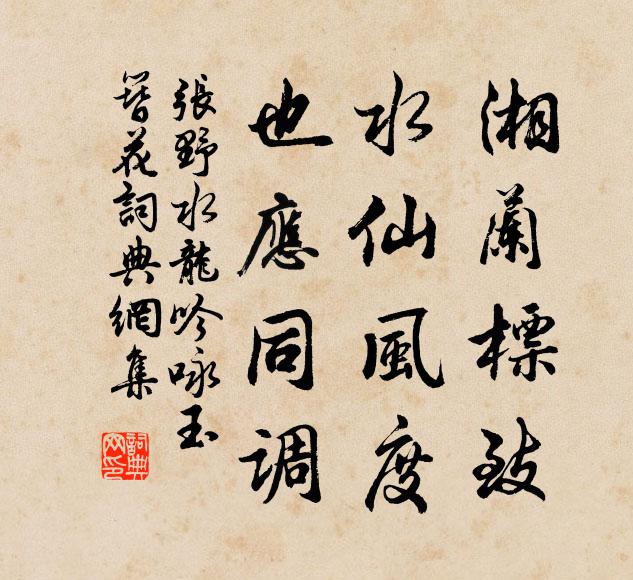 湘蘭標致
水仙風度
也應同調
張野水龍吟咏玉
簪花詞典網集
詞典網印